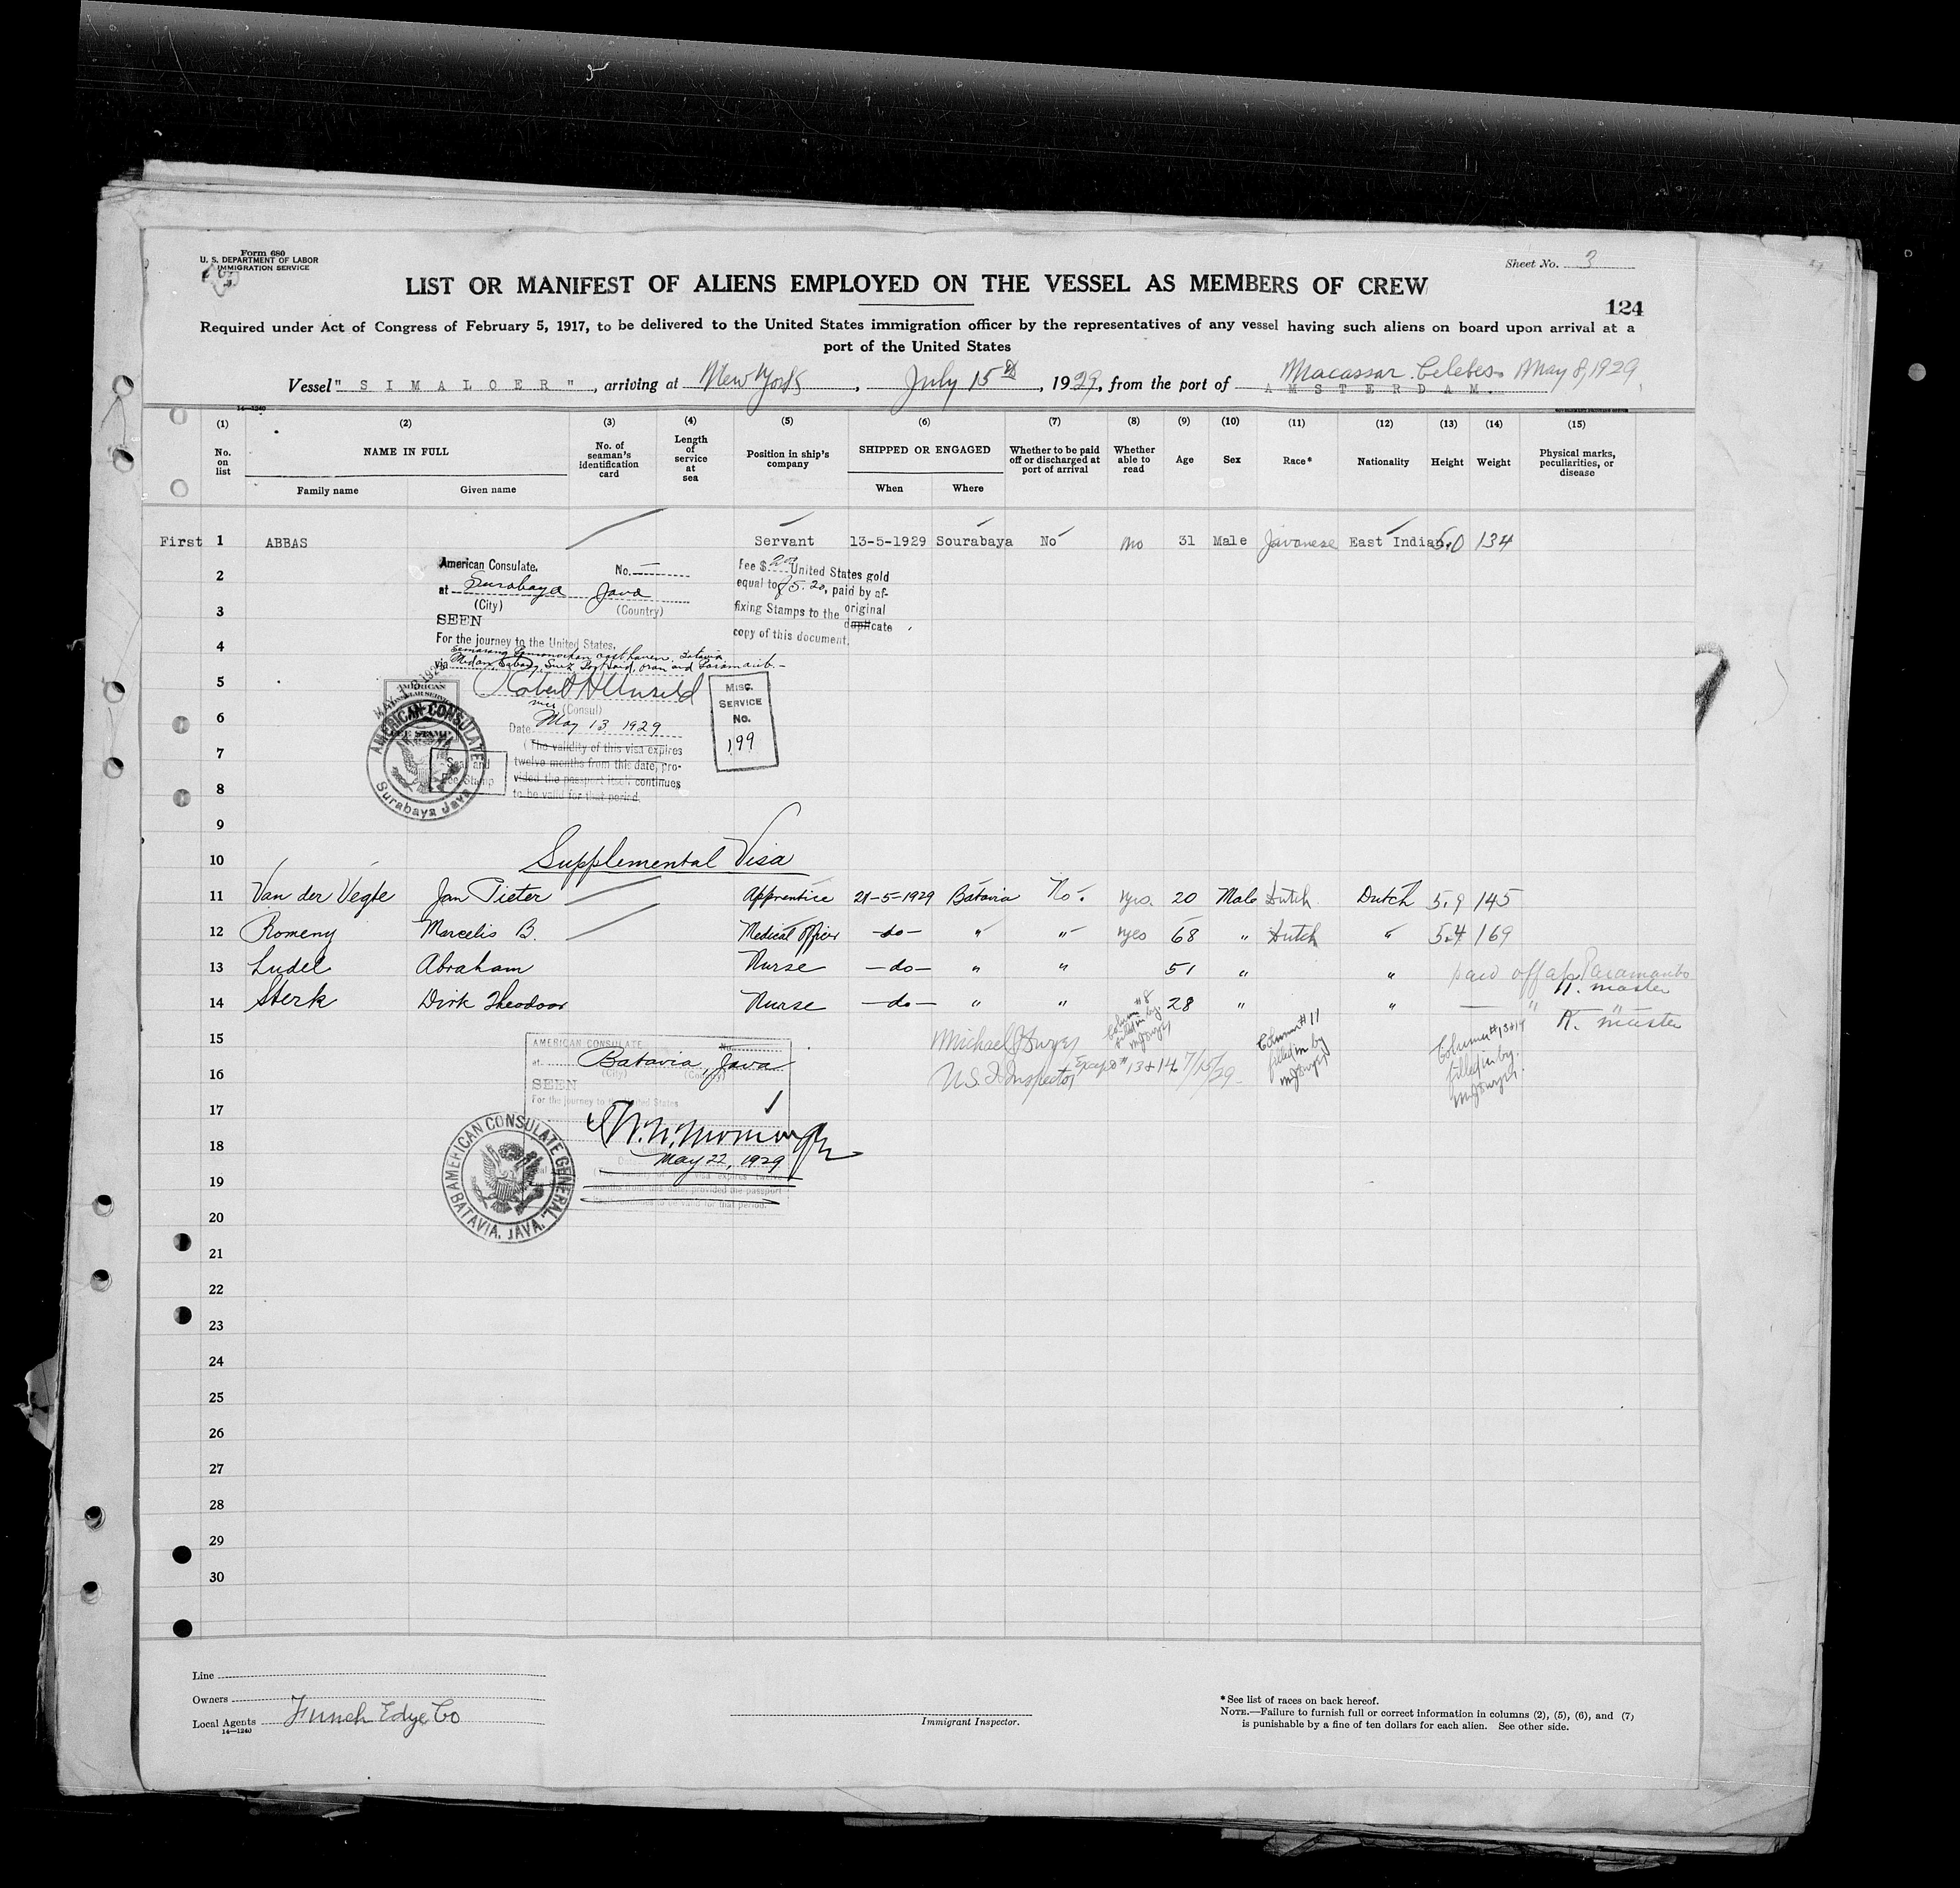 Form 680
U. S. DEPARTMENT OF LABOR
IMMIGRATION SERVICE
Sheet No. 3
LIST OR MANIFEST OF ALIENS EMPLOYED ON THE VESSEL AS MEMBERS OF CREW
124
Required under Act of Congress of February 5, 1917, to be delivered to the United States immigration officer by the representatives of any vessel having such aliens on board upon arrival at a
port of the United States
Macassar Celebes May 8, 1929
Vessel "SIMALOER", arriving at New York, July 15th, 1929, from the port of AMSTERDAM.
14—1240
(1) (2) (3) (4) (5) (6) (7) (8) (9) (10) (11) (12) (13) (14) (15)
No. on list
NAME IN FULL
Family name Given name
No. of seaman's identification card
Length of service at sea
Position in ship's company
SHIPPED OR ENGAGED
When Where
Whether to be paid off or discharged at port of arrival
Whether able to read
Age
Sex
Race*
Nationality
Height
Weight
Physical marks, peculiarities, or disease
First 1 ABBAS Servant 13-5-1929 Sourabaya No no 31 Male Javanese East Indian 5.0 134
2
3
4
5
6
7
8
9
American Consulate. No. —
at Surabaya Java
(City) (Country)
SEEN
For the journey to the United States.
Semarang Oosthaven, Batavia
via Medan, Sabang, Suez, Port Said, Oran and Paramarib.-
Robert H Unseld
vice (Consul)
Date May 13 1929
(The validity of this visa expires
twelve months from this date, pro-
vided the passport itself continues
to be valid for that period.
Fee $ United States gold
equal to f 5.20, paid by af-
fixing Stamps to the original
duplicate
copy of this document.
MISC.
SERVICE
No.
199
AMERICAN
CONSULAR SERVICE
FEE STAMP
AMERICAN CONSULATE
Surabaya Java
Seal and
Fee Stamp
10 Supplemental Visa
11 Van der Vegte Jan Pieter Apprentice 21-5-1929 Batavia No. yes. 20 Male Dutch Dutch 5.9 145
12 Romeny Marcelis B. Medical officer -do- " " yes 68 " Dutch " 5.4 169
13 Ludel Abraham Nurse -do- " " 51 " " paid off at Paramaribo
master
14 Sterk Dirk Theodoor Nurse -do- " " 28 " " — " "
master
15
16
17
18
19
20
21
22
23
24
25
26
27
28
29
30
Michael J Dwyer
U.S. I. Inspector Except # 13 & 14 7/15/29
Column #8
filled in by
MJ Dwyer
Column # 11
filled in by
MJ Dwyer
Columns # 13 & 14
filled in by
MJ Dwyer.
AMERICAN CONSULATE No.
at Batavia, Java
(City) (Country)
SEEN
For the journey to the United States
May 22, 1929
visa expires twelve
months from this date, provided the passport
itself continues to be valid for that period.
AMERICAN CONSULATE GENERAL
BATAVIA, JAVA.
Line
Owners
Local Agents Funch Edye Co
14—1240
Immigrant Inspector.
*See list of races on back hereof.
NOTE.—Failure to furnish full or correct information in columns (2), (5), (6), and (7)
is punishable by a fine of ten dollars for each alien. See other side.